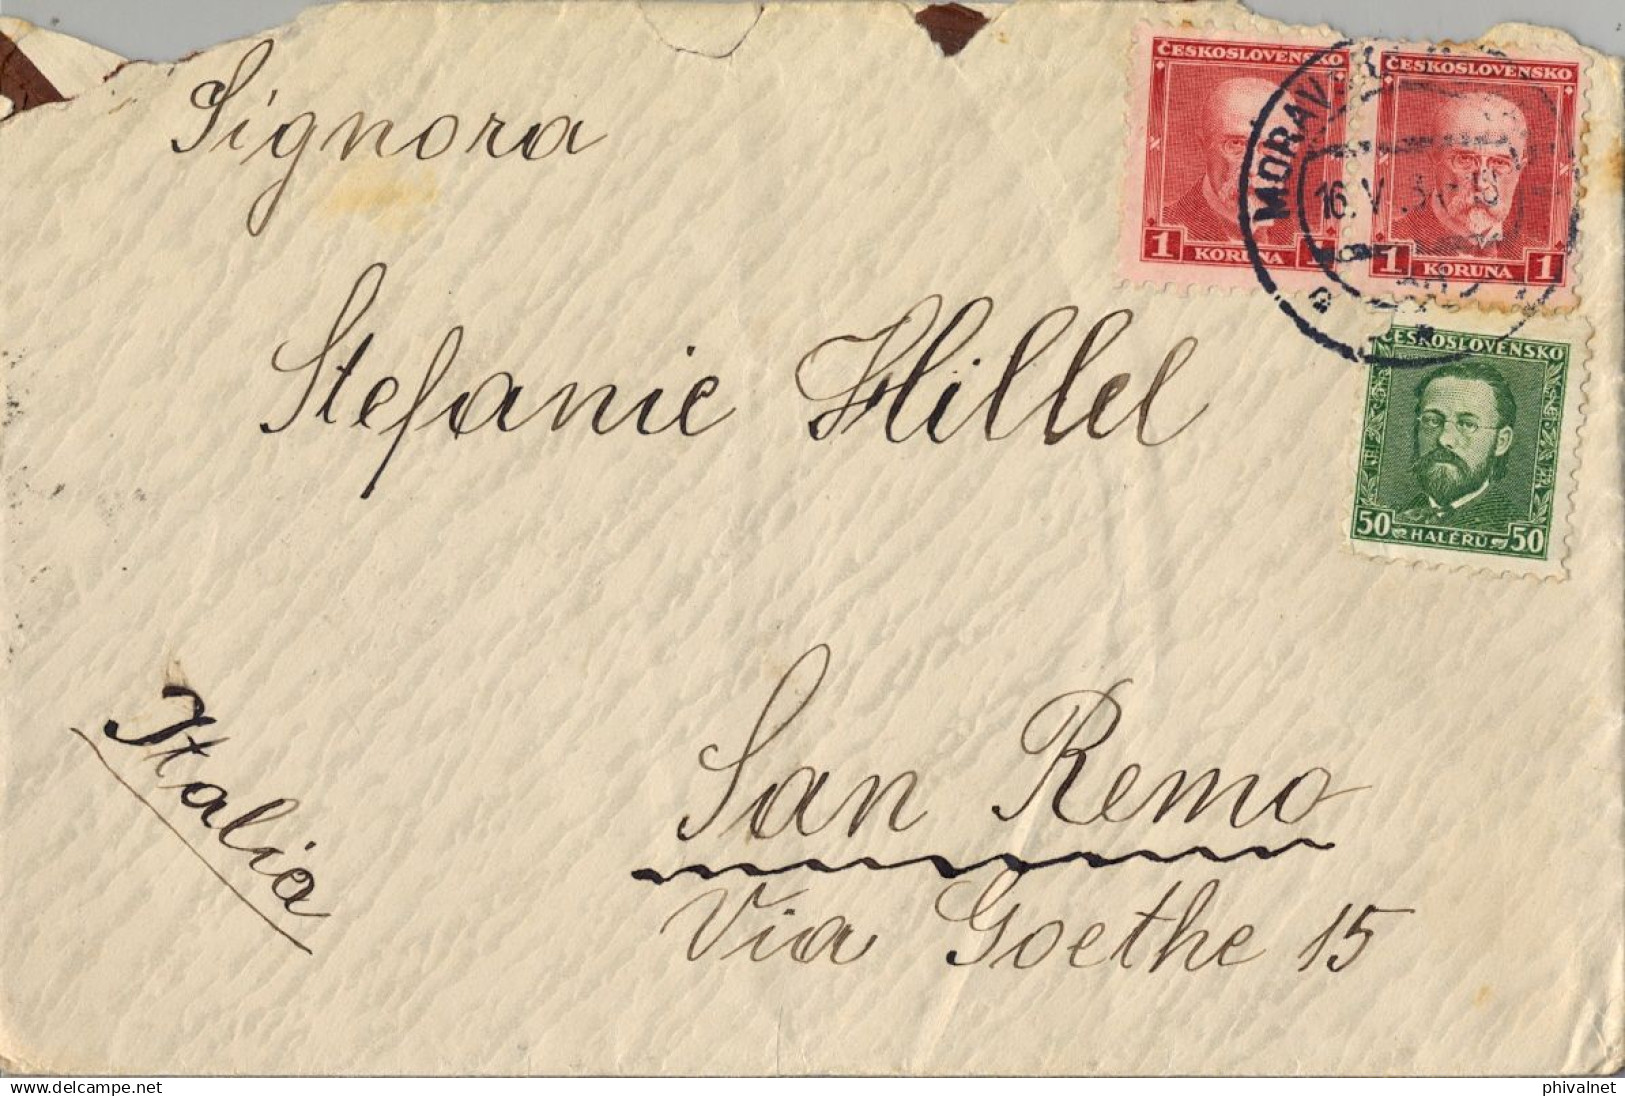 Signora
Stefanie Hillel
Italia
San Remo
Via Goethe 15
ČESKOSLOVENSKO
1 KORUNA 1
ČESKOSLOVENSKO
1 KORUNA 1
16. V
ČESKOSLOVENSKO
50 HALÉŘŮ 50
www.delcampe.net
phivalnet